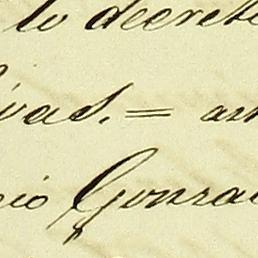 lo decret
ivas. = an
cio Gonza